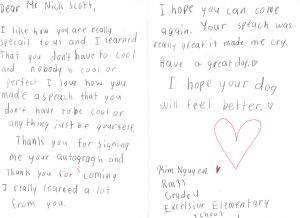 Dear Mr Nich Scott,
I like how you are really
special to us and I learned
that you don't have to cool
and nobody is cool or
perfect I love how you
made a speach that you
don't have to be cool or
anything just be yourself.
Thank you for signing
me your autogragh and
Thank you for coming
I really learned a lot
from you.
I hope you can come
again. Your speach was
really great it made me cry.
Have a great day.
I hope your dog
will feel better.
Kim Nguyen
Rm33
Grade 4
Excelsior Elementary
School